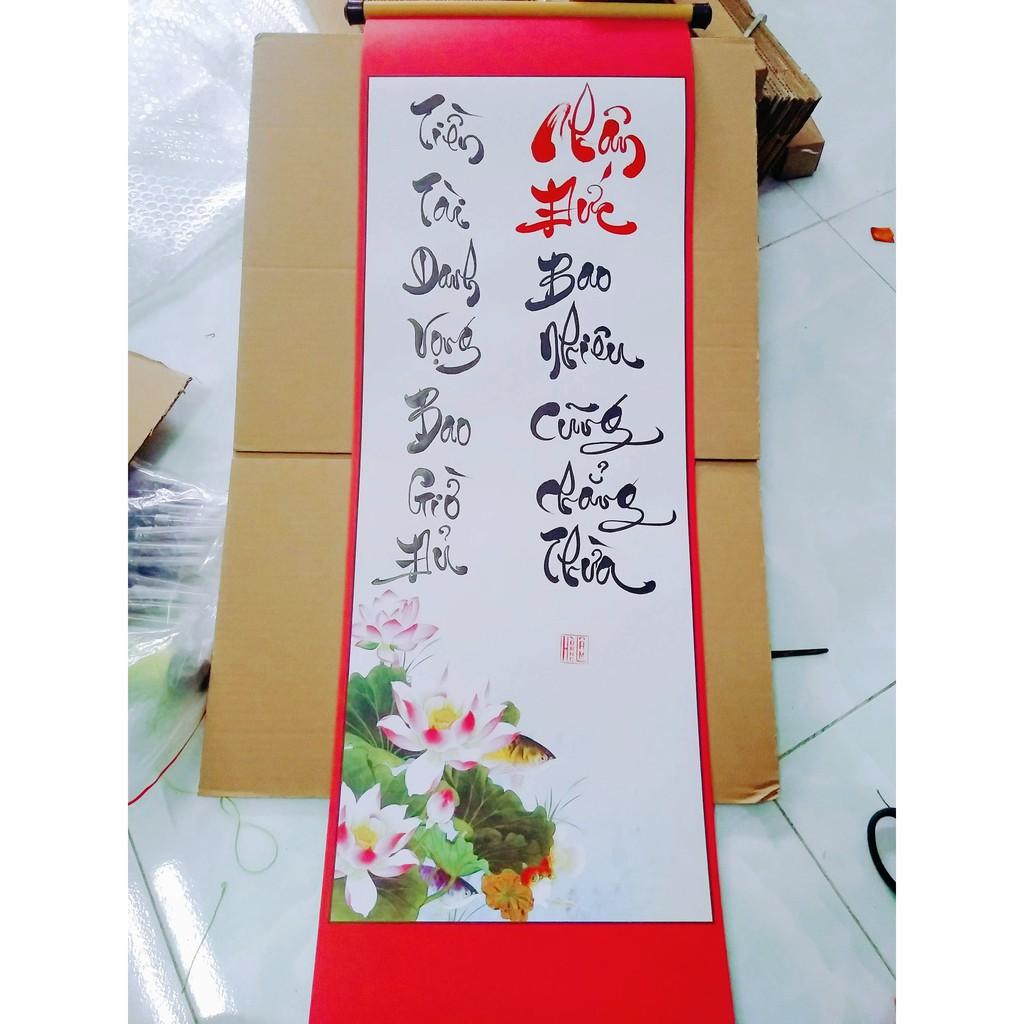 Tiền
Tài
Danh
Vọng
Bao
Giờ
Đủ
Nhân
Đức
Bao
Nhiêu
Cũng
Chẳng
Thừa